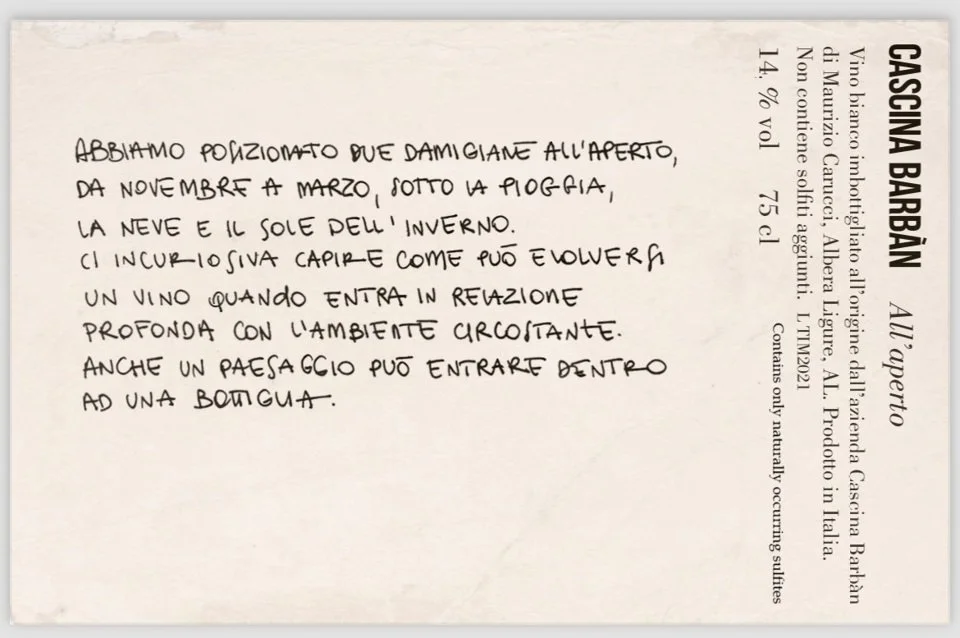 ABBIAMO POSIZIONATO DUE DAMIGIANE ALL'APERTO,
DA NOVEMBRE A MARZO, SOTTO LA PIOGGIA,
LA NEVE E IL SOLE DELL'INVERNO.
CI INCURIOSIVA CAPIRE COME PUÒ EVOLVERSI
UN VINO QUANDO ENTRA IN RELAZIONE
PROFONDA CON L'AMBIENTE CIRCOSTANTE.
ANCHE UN PAESAGGIO PUÒ ENTRARE DENTRO
AD UNA BOTTIGLIA.
CASCINA BARBÀN All'aperto
Vino bianco imbottigliato all'origine dall'azienda Cascina Barbàn
di Maurizio Carucci, Albera Ligure, AL. Prodotto in Italia.
Non contiene solfiti aggiunti. L TIM2021
14. % vol 75 cl Contains only naturally occurring sulfites